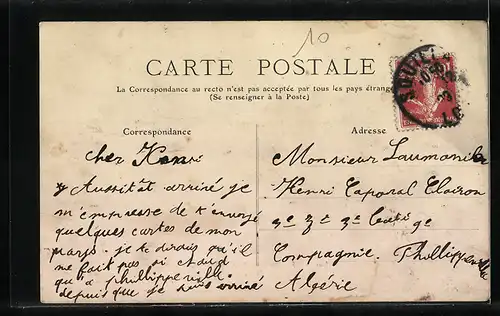 10
CARTE POSTALE
La Correspondance au recto n'est pas acceptée par tous les pays étrange
(Se renseigner à la Poste)
Correspondance
Adresse
cher Henri
Aussitôt arrivé je
m'empresse de t'envoyé
quelques cartes de mon
pays. je te dirais qu'il
ne fait pas si chaud
qu'a phillippeville.
depuis que je suis arrivé
Monsieur Laumonier
Henri Caporal Clairon
3e Z 9e
Compagnie. Phillippeville
Algérie